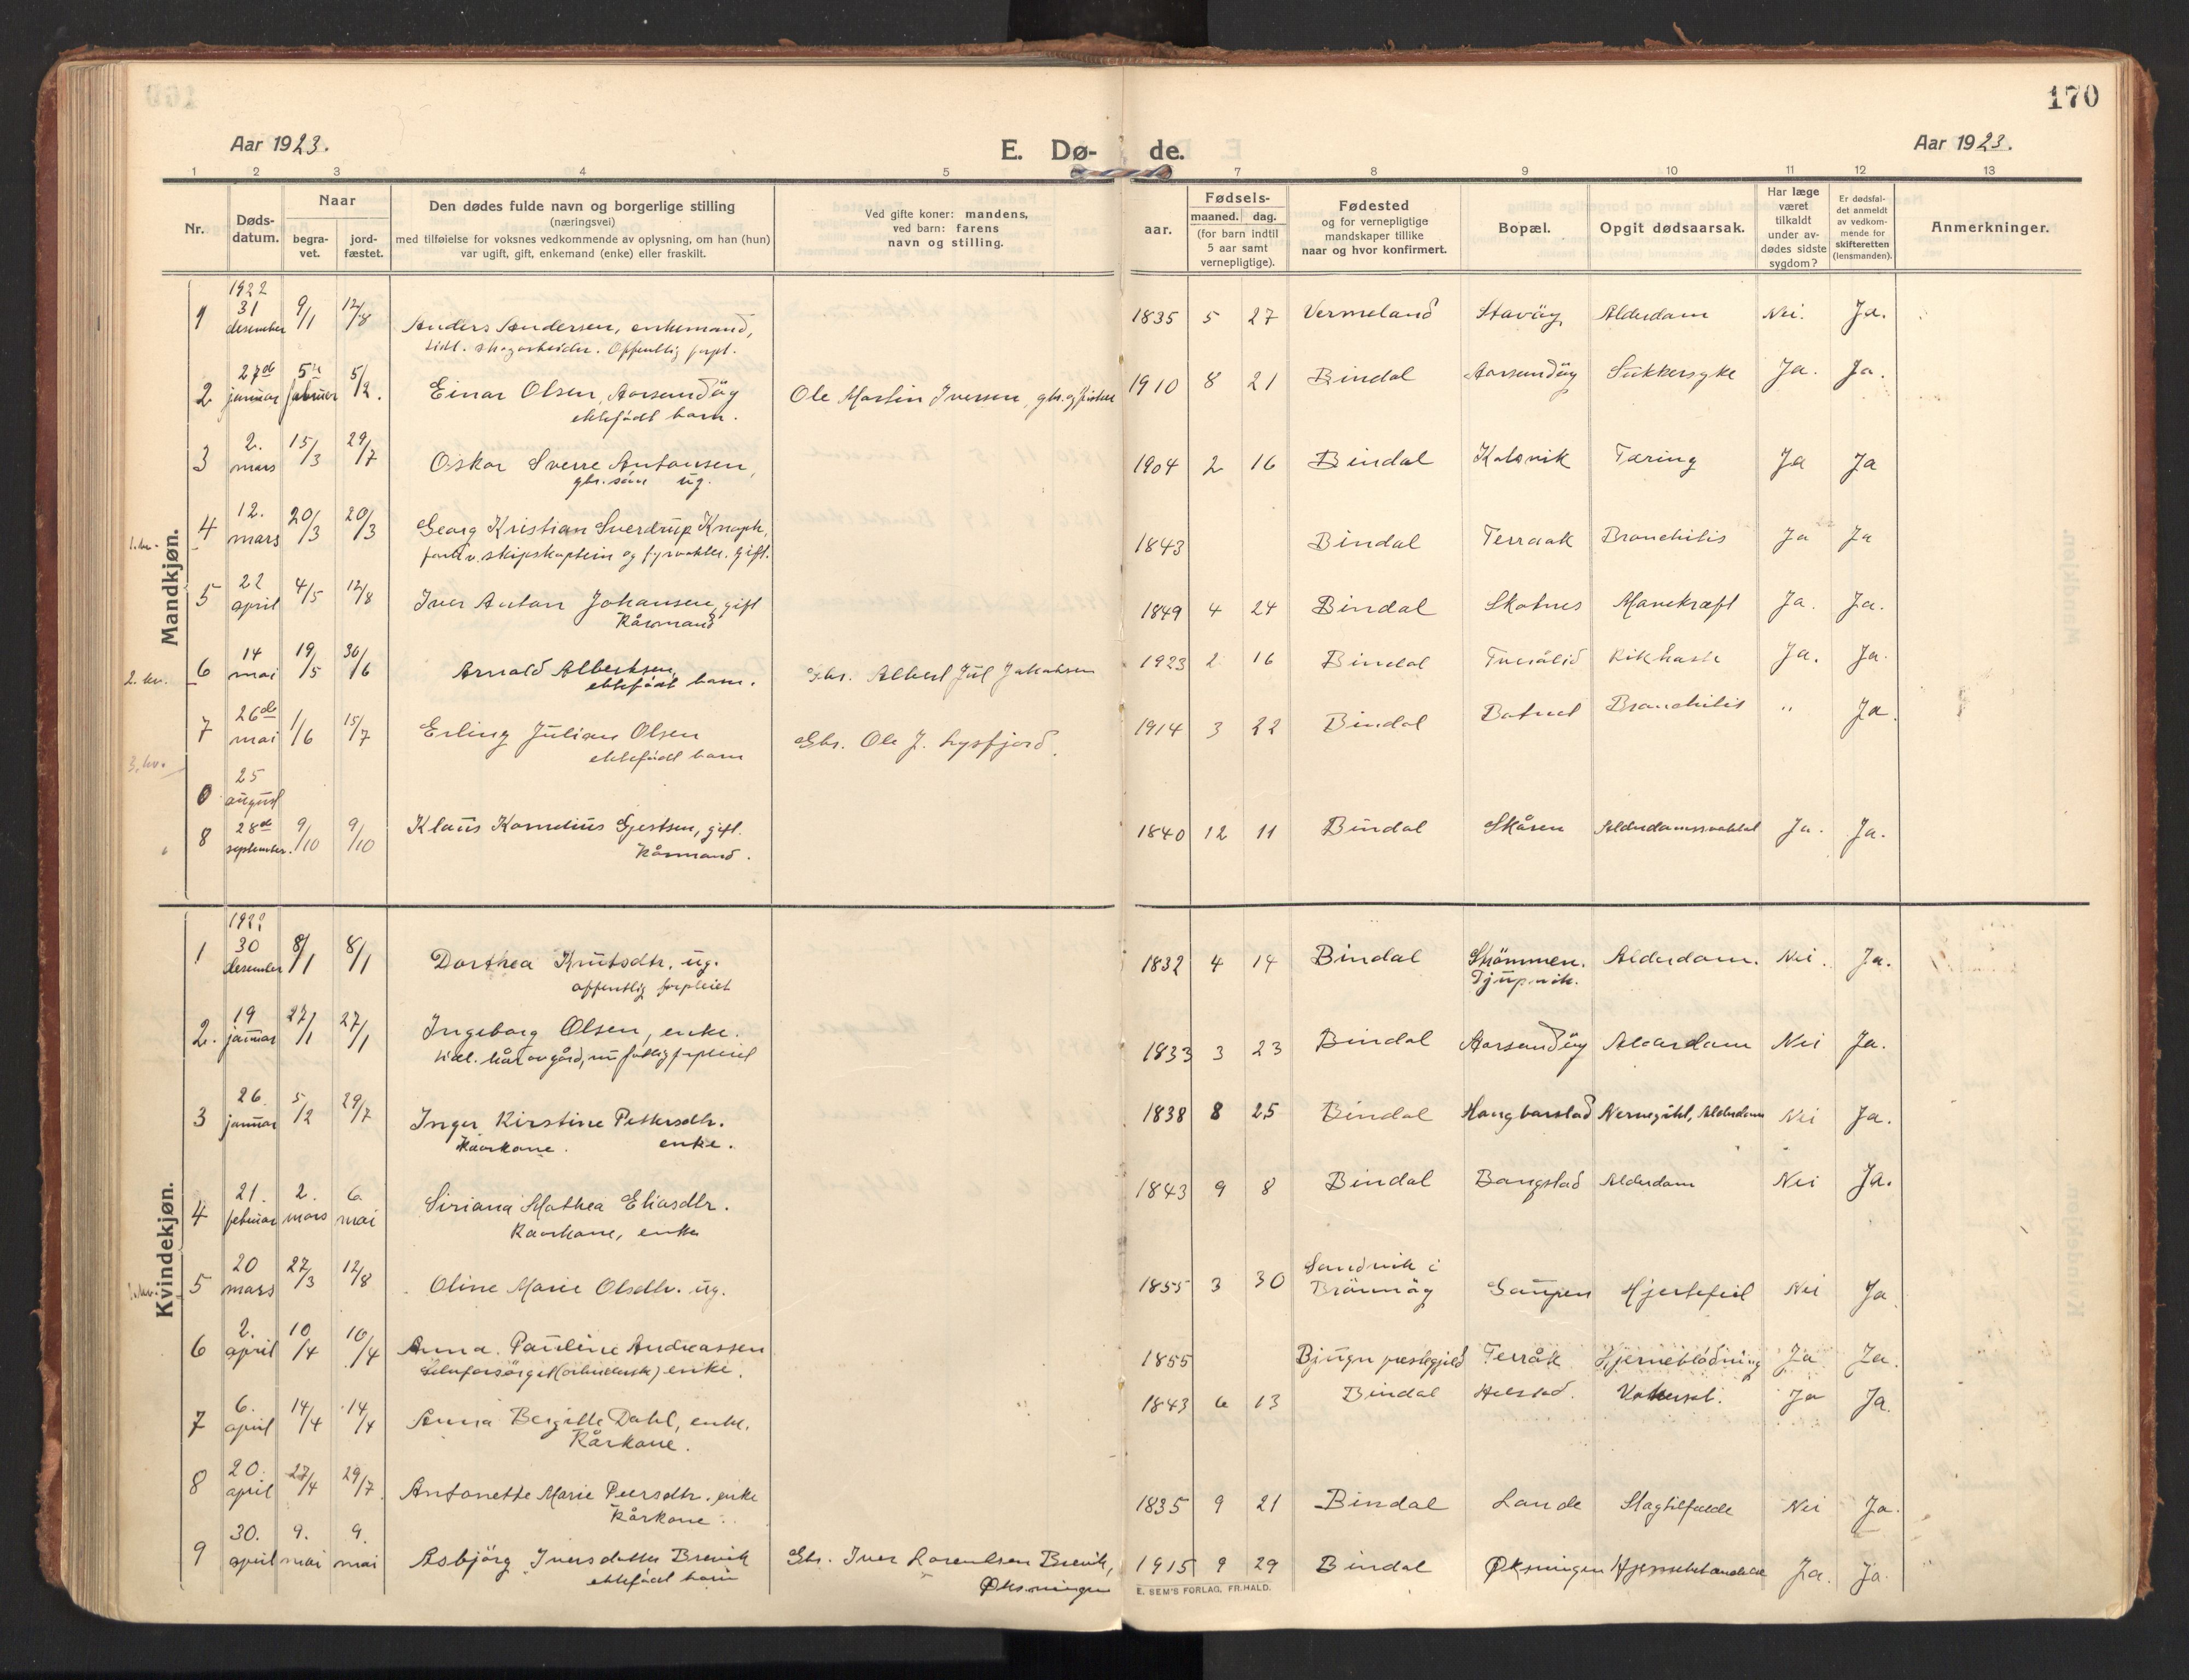 170
Aar 1923.
E. Dø- de.
Aar 1923.
1 2 3 4 5 7 8 9 10 11 12 13
Nr.
Døds-
datum.
Naar
begra-
vet.
jord-
fæstet.
Den dødes fulde navn og borgerlige stilling
(næringsvei)
med tilføielse for voksnes vedkommende av oplysning, om han (hun)
var ugift, gift, enkemand (enke) eller fraskilt.
Ved gifte koner: mandens,
ved barn: farens
navn og stilling.
Fødsels-
aar.
maaned. dag.
(for barn indtil
5 aar samt
vernepligtige).
Fødested
og for vernepligtige
mandskaper tillike
naar og hvor konfirmert.
Bopæl.
Opgit dødsaarsak.
Har læge
været
tilkaldt
under av-
dødes sidste
sygdom?
Er dødsfal-
det anmeldt
av vedkom-
mende for
skifteretten
(lensmanden).
Anmerkninger.
Mandkjøn.
1922
1 31 desember 9/1 12/8 Anders Andersen, enkemand, 1835 5 27 Vermeland Stavöy Alderdom Nei. Ja.
tidl. skogarbeider. Offentlig forpl.
2 27de januar 5te februar 5/2. Einar Olsen, Aarsandöy Ole Martin Iversen, gbr. og fisker 1910 8 21 Bindal Aarsandöy Sukkersyke Ja. Ja.
ektefødt barn.
3 2. mars 15/3 29/7 Oskar Sverre Antonsen, 1904 2 16 Bindal Kalsvik Tæring Ja Ja
gbr. sön ug.
1. kv.
4 12. mars 20/3 20/3 Georg Kristian Sverdrup Knoph, 1843 Bindal Terraak Bronchitis Ja Ja
forhv. skipskaptein og fyrvokter. Gift.
5 22 april 4/5 12/8 Iver Anton Johansen, gift 1849 4 24 Bindal Skotnes Mavekræft Ja. Ja.
Kårmand
2. kv.
6 14 mai 19/5 30/6 Arnold Albertsen, Gbr. Albert Jul Jakobsen 1923 2 16 Bindal Kikhoste Ja. Ja.
ektefødt barn.
7 26de mai 1/6 15/7 Erling Julian Olsen Gbr. Ole J. Lysfjord. 1914 3 22 Bindal Botnet Bronchitis " Ja.
ektefødt barn
3. kv.
0 25 august
8 28de september. 9/10 9/10 Klaus Kornelius Gjertsen, gift. 1840 12 11 Bindal Skåren Ja. Ja.
Kårmand.
Kvindekjøn.
1922
1 30 desember 8/1 8/1 Dorthea Knutsdtr. ug. 1832 4 14 Bindal Strömmen. Alderdom. Nei. Ja.
offentlig forpleiet Djupvik.
2. 19 januar 27/1 27/1 Ingeborg Olsen, enke. 1833 3 23 Bindal Aarsandöy Alderdom Nei Ja.
3 26. januar 5/2 29/7 Inger Kirstine Pettersdtr. 1838 8 25 Bindal Nei Ja.
Kaarkone. enke.
4 21. februar 2. mars 6 mai Siriana Mathea Eliasdtr. 1843 9 8 Bindal Bangstad Alderdom Nei Ja.
Kaarkone, enke
1. kv.
5 20 mars 27/3 12/8 Oline Marie Olsdtr. ug. 1855 3 30 Sandvik i Brönnöy Gaupen Hjertefeil Nei Ja
6 2. april 10/4 10/4 Anna Pauline Andreassen 1855 Bjugn prestegjeld Terråk Hjerneblödning Ja Ja.
Selvforsörget (arbeiderske) enke.
7 6. april 14/4 14/4 Anna Bergitte Dahl, enke. 1843 6 13 Bindal Ja Ja.
Kårkone.
8 20. april 27/4 29/7 Antonette Marie Peersdtr. enke 1835 9 21 Bindal Lande Slagtilfælde Nei Ja.
Kårkone.
9 30. april 9. mai 9. mai Asbjörg Iversdatter Brevik Gbr. Iver Lorentsen Brevik, 1915 9 29 Bindal Øksningen Ja. Ja.
ektefødt barn Øksningen
E. SEM'S FORLAG, FR.HALD.